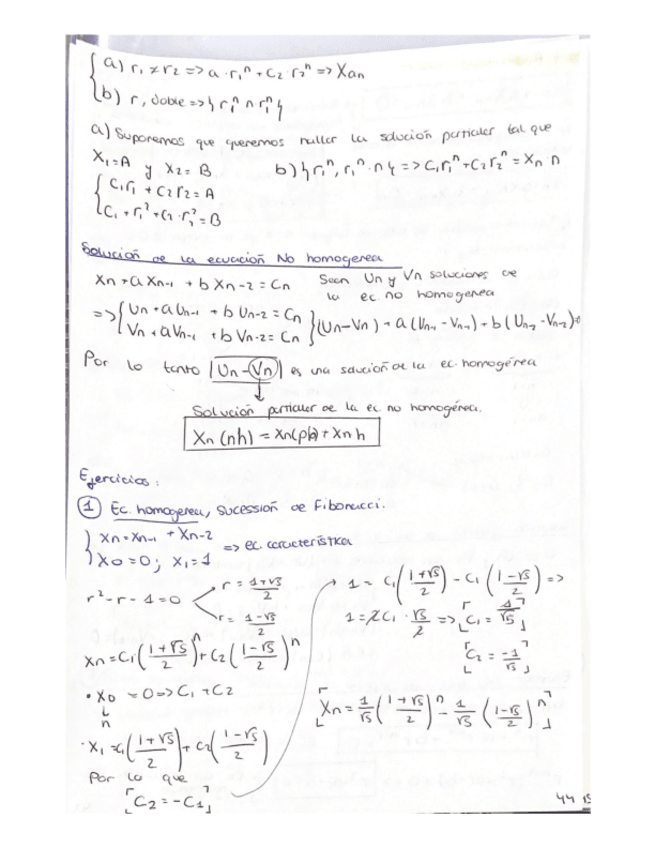 a) r₁ ≠ r₂ => a · r₁ⁿ + C₂ · r₂ⁿ => Xan
b) r, doble => { r₁ⁿ n r₁ⁿ }
a) Suponemos que queremos hallar la solución particular tal que
X₁ = A y X₂ = B
b) { r₁ⁿ, r₁ⁿ · n } => C₁r₁ⁿ + C₂r₂ⁿ = Xn · n
C₁r₁ + C₂r₂ = A
C₁ + r₁² + C₂ · r₁² = B
Solución de la ecuación No homogenea
Xn + a Xn-1 + b Xn-2 = Cn Sean Un y Vn soluciones de
la ec. no homogenea
=> { Un + a Un-1 + b Un-2 = Cn
Vn + a Vn-1 + b Vn-2 = Cn } (Un - Vn) + a (Un-1 - Vn-1) + b (Un-2 - Vn-2) = 0
Por lo tanto |Un - Vn| es una solución de la ec. homogénea
Solución particular de la ec no homogénea.
Xn (nh) = Xn(ph) + Xn h
Ejercicios:
1 Ec. homogenea, sucessión de Fibonacci.
Xn = Xn-1 + Xn-2
X0 = 0; X₁ = 1
=> ec. característica
r² - r - 1 = 0
r = (1+√5)/2
r = (1-√5)/2
Xn = C₁ ((1+√5)/2)ⁿ + C₂ ((1-√5)/2)ⁿ
· X0 = 0 => C₁ + C₂
n
· X₁ = C₁ ((1+√5)/2) + C₂ ((1-√5)/2)
Por lo que
C₂ = -C₁
1 = C₁ ((1+√5)/2) - C₁ ((1-√5)/2) =>
1 = 2C₁ · √5/2 => C₁ = 1/√5
C₂ = -1/√5
Xn = 1/√5 ((1+√5)/2)ⁿ - 1/√5 ((1-√5)/2)ⁿ